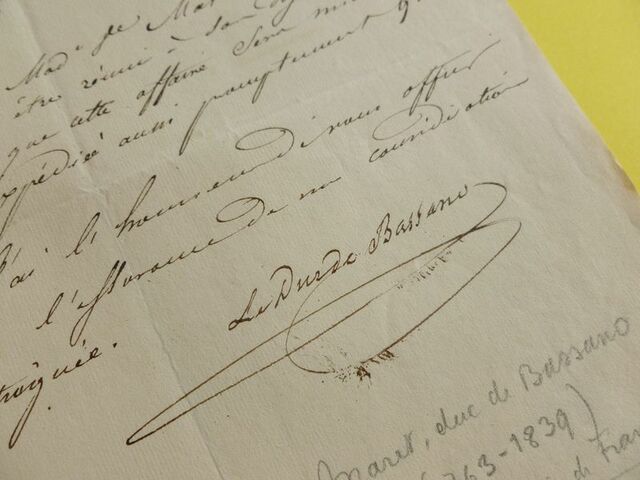 Made de Mal
être réuni à son
que cette affaire sera
expédiée aussi promptement q
J'ai l'honneur de vous offrir
l'assurance de ma considération
Le Duc de Bassano
Maret, duc de Bassano
1763-1839)
de Fran